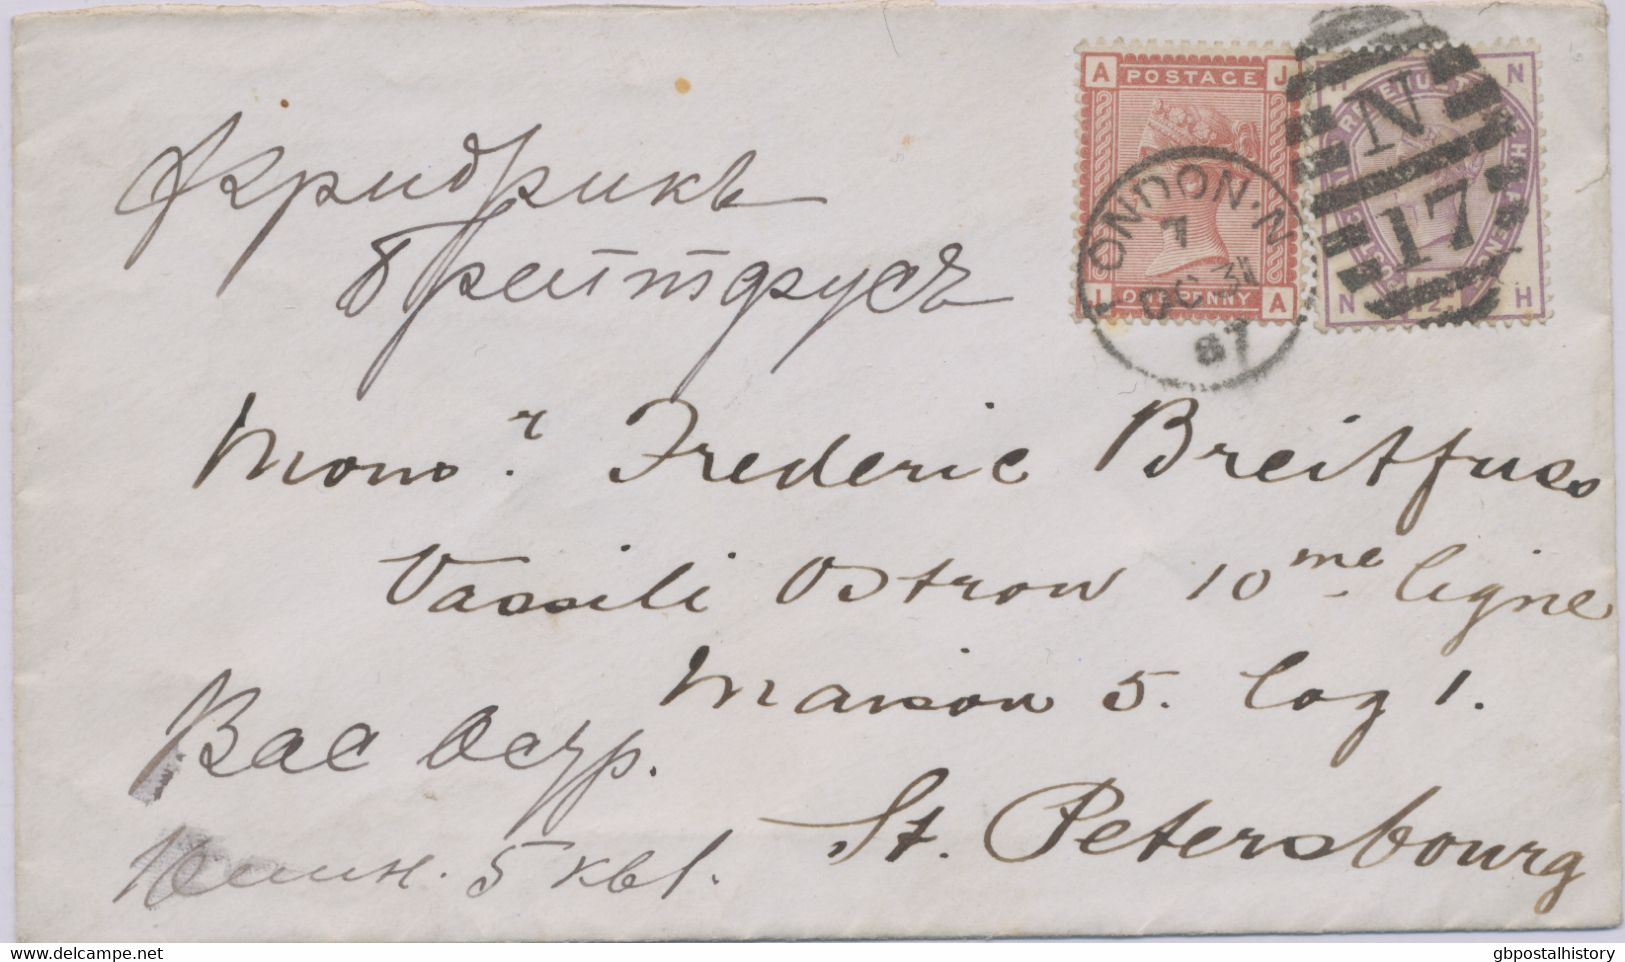 A POSTAGE J
ONE PENNY A
N
N 1½ H
LONDON·N
7
OC 31
87
N
17
Фридрикъ
Брейтфусъ
Monsr. Frederic Breitfuss
Vassili Ostrow 10me ligne
Maison 5. Log 1.
Вас Остр.
5 кв 1.
St. Petersbourg
www.delcampe.net
gbpostalhistory